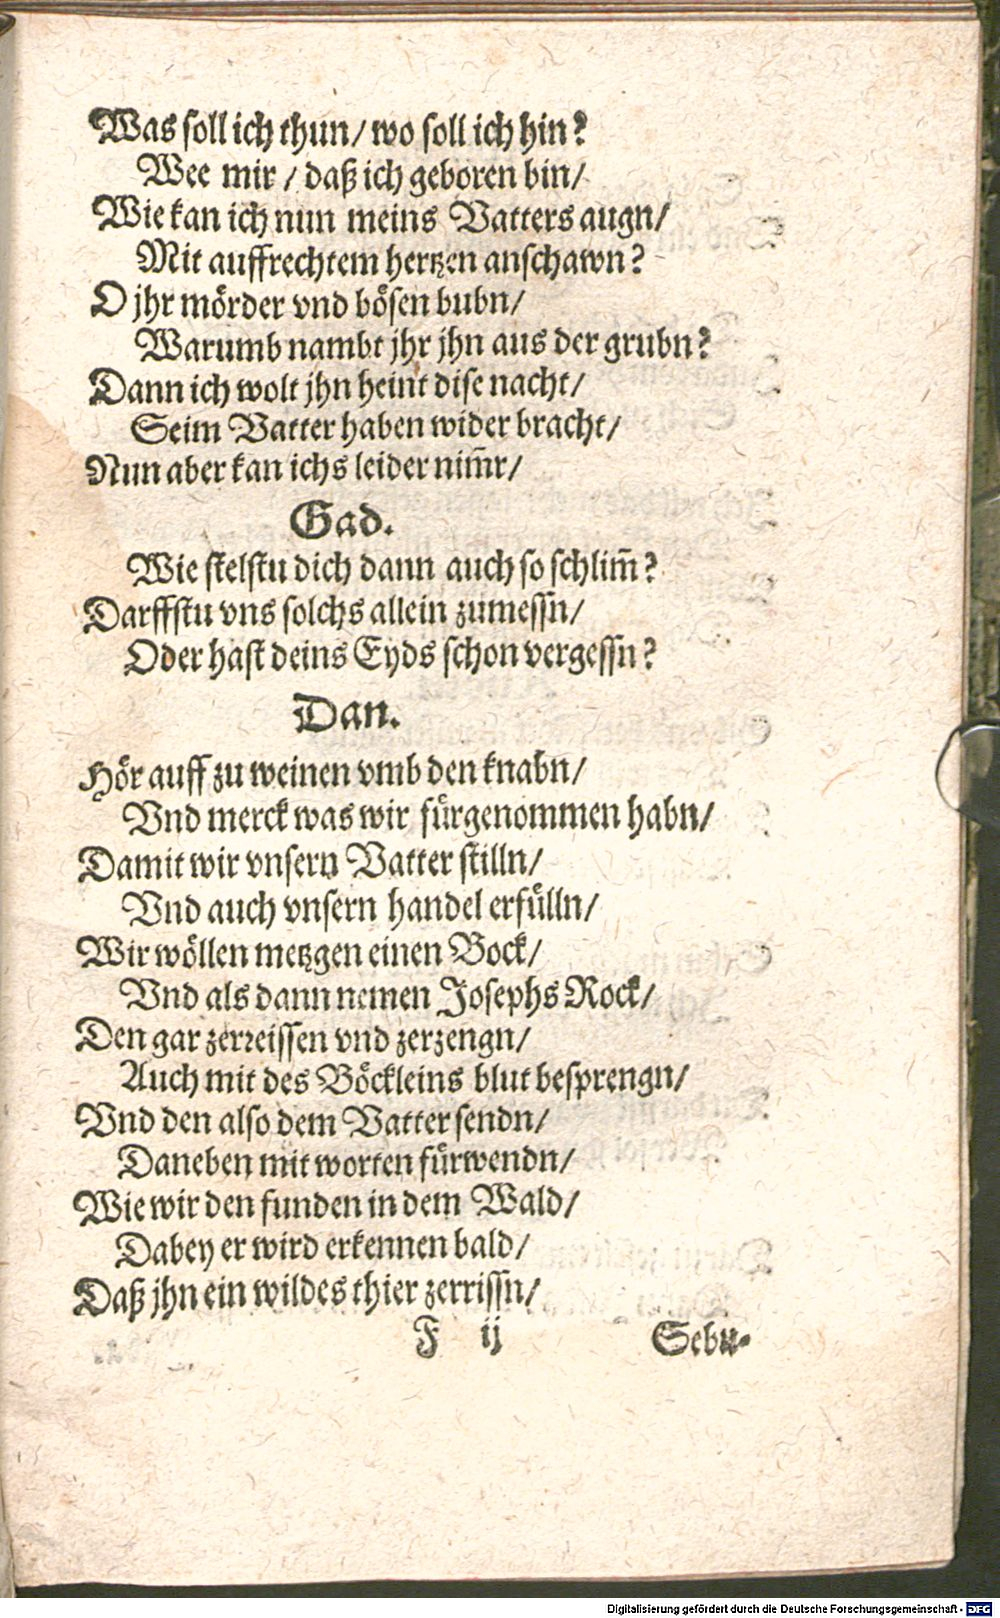 Was soll ich thun/ wo soll ich hin?
Wee mir / daß ich geboren bin/
Wie kan ich nun meins Vatters augn/
Mit auffrechtem hertzen anschawn?
O jhr mörder vnd bösen bubn/
Warumb nambt jhr jhn aus der grubn?
Dann ich wolt jhn heint dise nacht/
Seim Vatter haben wider bracht/
Nun aber kan ichs leider nim̄r/
Gad.
Wie stelstu dich dann auch so schlim̄?
Darffstu vns solchs allein zumessn/
Oder hast deins Eyds schon vergessn?
Dan.
Hör auff zu weinen vmb den knabn/
Vnd merck was wir fürgenommen habn/
Damit wir vnsern Vatter stilln/
Vnd auch vnsern handel erfülln/
Wir wöllen metzgen einen Bock/
Vnd als dann nemen Josephs Rock/
Den gar zerreissen vnd zerzengn/
Auch mit des Böckleins blut besprengn/
Vnd den also dem Vatter sendn/
Daneben mit worten fürwendn/
Wie wir den funden in dem Wald/
Dabey er wird erkennen bald/
Daß jhn ein wildes thier zerrissn/
F ij Sebu-
Digitalisierung gefördert durch die Deutsche Forschungsgemeinschaft - DFG